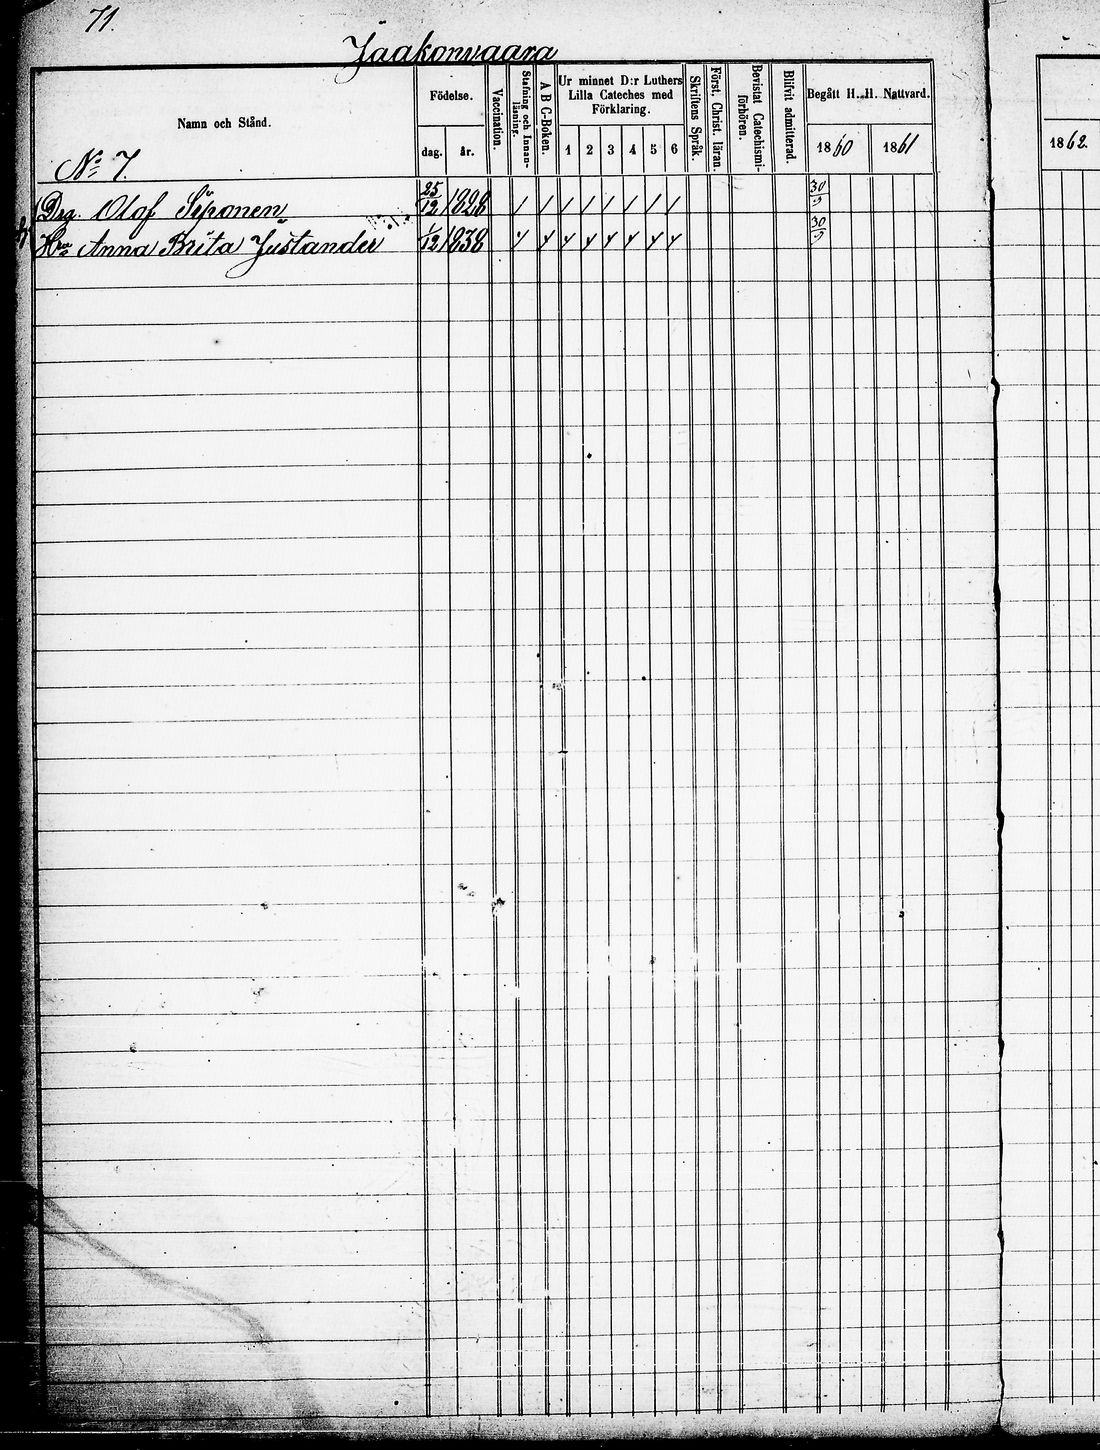 71.
Jaakonvaara
Namn och Stånd.
Födelse.
dag. år.
Vaccination.
Stafning och Innan-läsning.
A B C-Boken.
Ur minnet D:r Luthers
Lilla Cateches med
Förklaring.
1 2 3 4 5 6
Skriftens Språk.
Först. Christ. läran.
Bevistat Catechismi-förhören.
Blifvit admitterad.
Begått H. H. Nattvard.
1860 1861
1862.
No 7.
Drg. Olof Siponen 25/12 1828 30/9
Hru Anna Brita Justander 1/12 1838 30/9